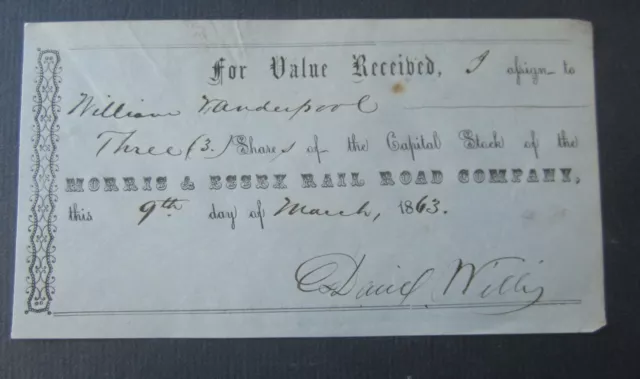 For Value Received, I assign to
William Vanderpool
Three (3.) Shares of the Capital Stock of the
MORRIS & ESSEX RAIL ROAD COMPANY,
this 9th day of March, 1863.
David Willis